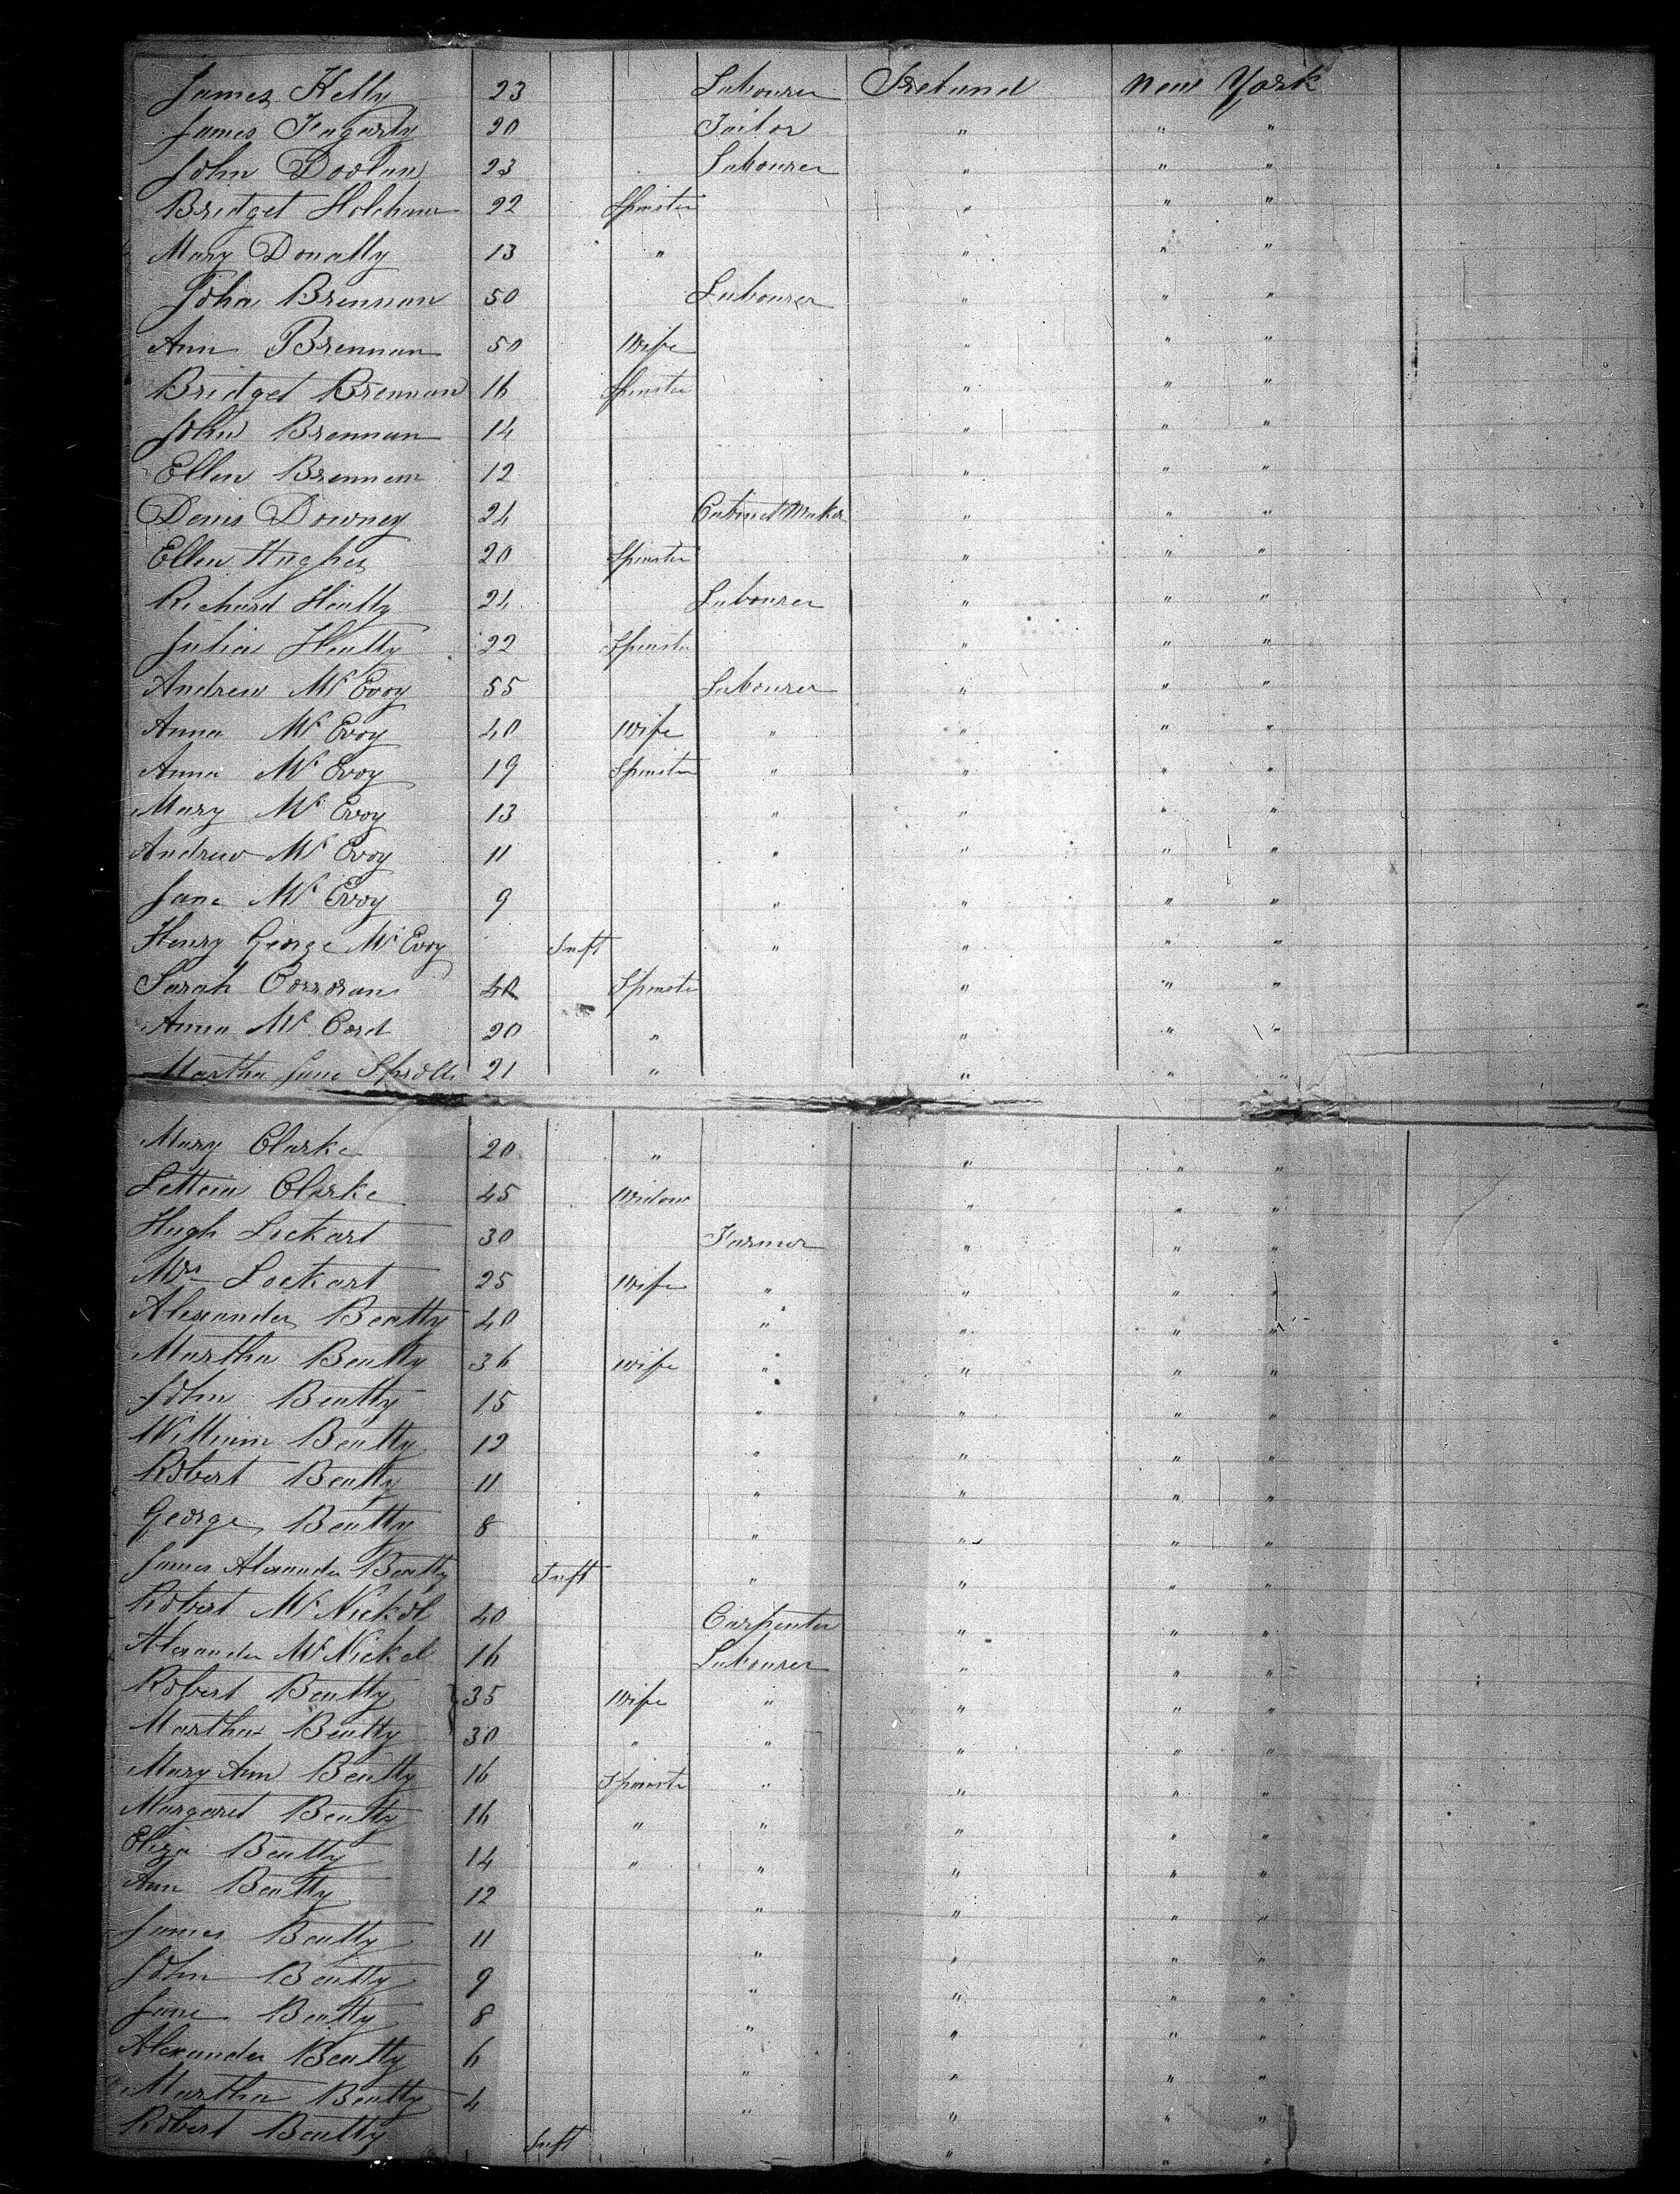 James Kelly 23 Labourer Ireland New York
James Fogarty 20 Tailor " " "
John Doolan 23 Labourer " " "
Bridget 22 Spinster " " "
Mary Donally 13 " " " "
John Brennan 50 Labourer " " "
Ann Brennan 50 Wife " " "
Bridget Brennan 16 Spinster " " "
John Brennan 14 " " "
Ellen Brennan 12 " " "
Denis Downey 24 Cabinet Maker " " "
Ellen Hughes 20 Spinster " " "
Richard 24 Labourer " " "
Julia 22 Spinster " " "
Andrew Mc Evoy 55 Labourer " " "
Anna Mc Evoy 40 Wife " " " "
Anna Mc Evoy 19 Spinster " " " "
Mary Mc Evoy 13 " " " "
Andrew Mc Evoy 11 " " " "
Jane Mc Evoy 9 " " " "
Henry George Mc Evoy Inft " " " "
Sarah Corroran 40 Spinster " " "
Anna Mc Cord 20 " " " "
Martha Jane 21 " " " "
Mary Clarke 20 " " " "
Clarke 45 Widow " " "
Hugh Lockart 30 Farmer " " "
Mrs Lockart 25 Wife " " " "
Alexander Beatty 40 " " " "
Martha Beatty 36 Wife " " " "
John Beatty 15 " " " "
William Beatty 12 " " " "
Robert Beatty 11 " " " "
George Beatty 8 " " " "
James Alexander Beatty Inft " " " "
Robert Mc Nickol 40 Carpenter " " "
Alexander Mc Nickel 16 Labourer " " "
Robert Beatty 35 Wife " " " "
Martha Beatty 30 " " " " "
Mary Ann Beatty 16 Spinster " " " "
Margaret Beatty 16 " " " " "
Eliza Beatty 14 " " " " "
Ann Beatty 12 " " " "
James Beatty 11 " " " "
John Beatty 9 " " " "
Jane Beatty 8 " " " "
Alexander Beatty 6 " " " "
Martha Beatty 4 " " " "
Robert Beatty Inft " " "